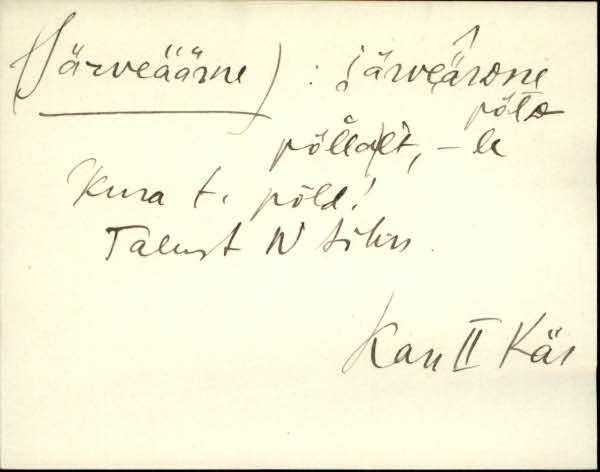 (Järveäärne) : järveä̂rne
põlᴅ
põllalt, – le
Kura t. põld.
Talust N pihn.
Kan II Kär